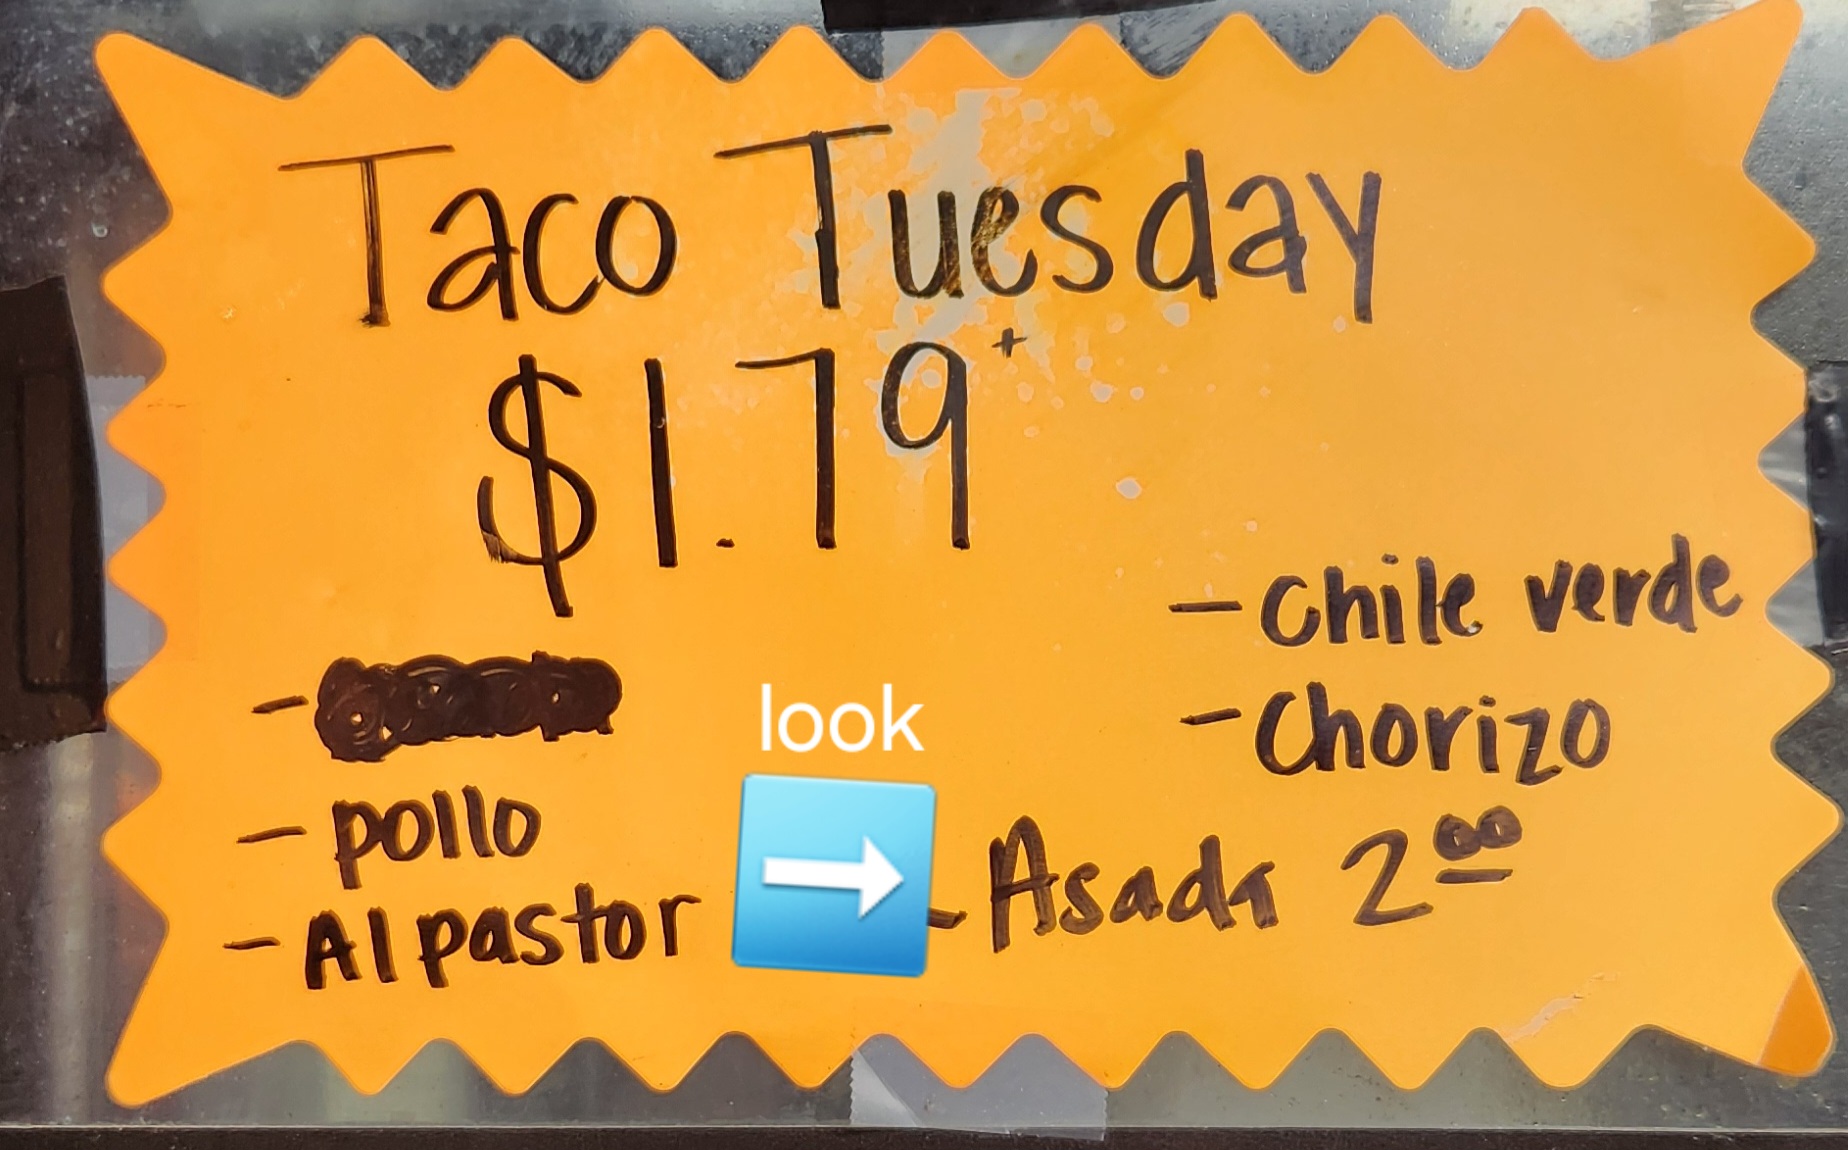 Taco Tuesday
$1.79+
- pollo
- Al pastor
- Chile verde
- Chorizo
look
- Asada 2.00